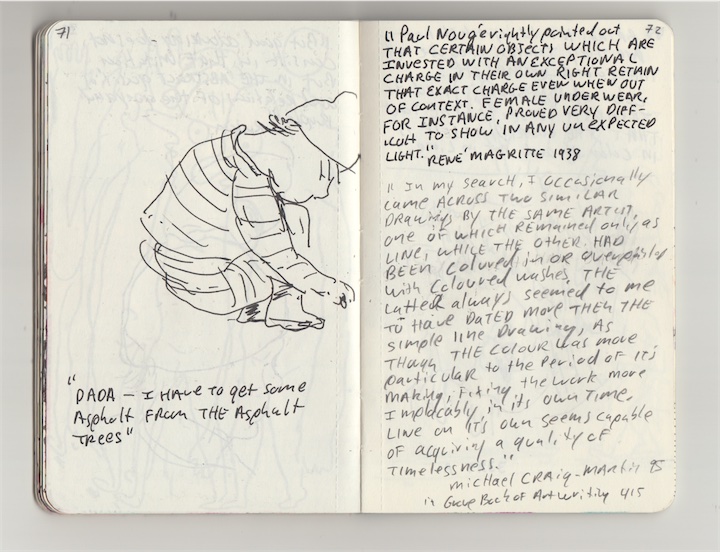 71
"
DADA — I HAVE TO get some
Asphalt FROM THE Asphalt
TREES"
72
"Paul Nougé rightly pointed out
THAT CERTAIN OBJECTS WHICH ARE
INVESTED WITH AN EXCEPTIONAL
CHARGE IN THEIR OWN RIGHT RETAIN
THAT EXACT CHARGE EVEN WHEN OUT
OF CONTEXT. FEMALE UNDERWEAR,
FOR INSTANCE, PROVED VERY DIFF-
ICULT TO SHOW IN ANY UNEXPECTED
LIGHT." RENE' MAGRITTE 1938
" In my search, I occasionally
came ACROSS TWO SIMILAR
DRAWINGS BY THE SAME ARTIST,
one of WHICH REMAINED only as
LINE, WHILE THE OTHER HAD
BEEN coloured in OR overpainted
with coloured washes. THE
Latter always seemed to me
TO HAVE DATED MORE THEN THE
simple line Drawing, AS
THOUGH THE COLOUR was more
particular to the Period of ITS
making, Fixing the work more
Implacably in its own Time.
Line on ITS own seems capable
OF acquiring a quality of
Timelessness."
Michael CRAIG-MARTIN 95
in Book of Art writing 415